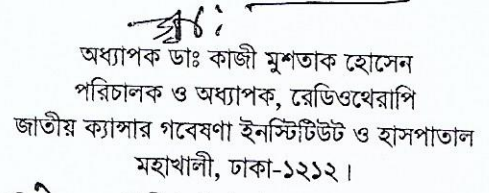 অধ্যাপক ডাঃ কাজী মুশতাক হোসেন
পরিচালক ও অধ্যাপক, রেডিওথেরাপি
জাতীয় ক্যান্সার গবেষণা ইনস্টিটিউট ও হাসপাতাল
মহাখালী, ঢাকা-১২১২।